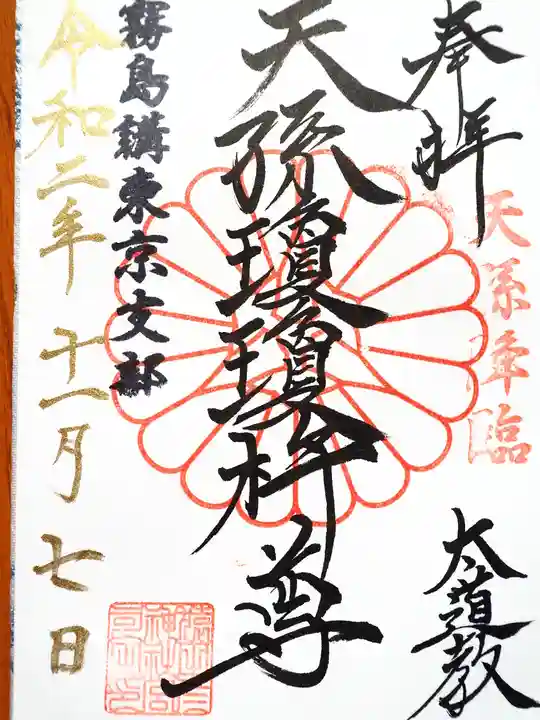 奉拝
天孫降臨
太道教
天孫瓊瓊杵尊
霧島講東京支部
令和二年十一月七日